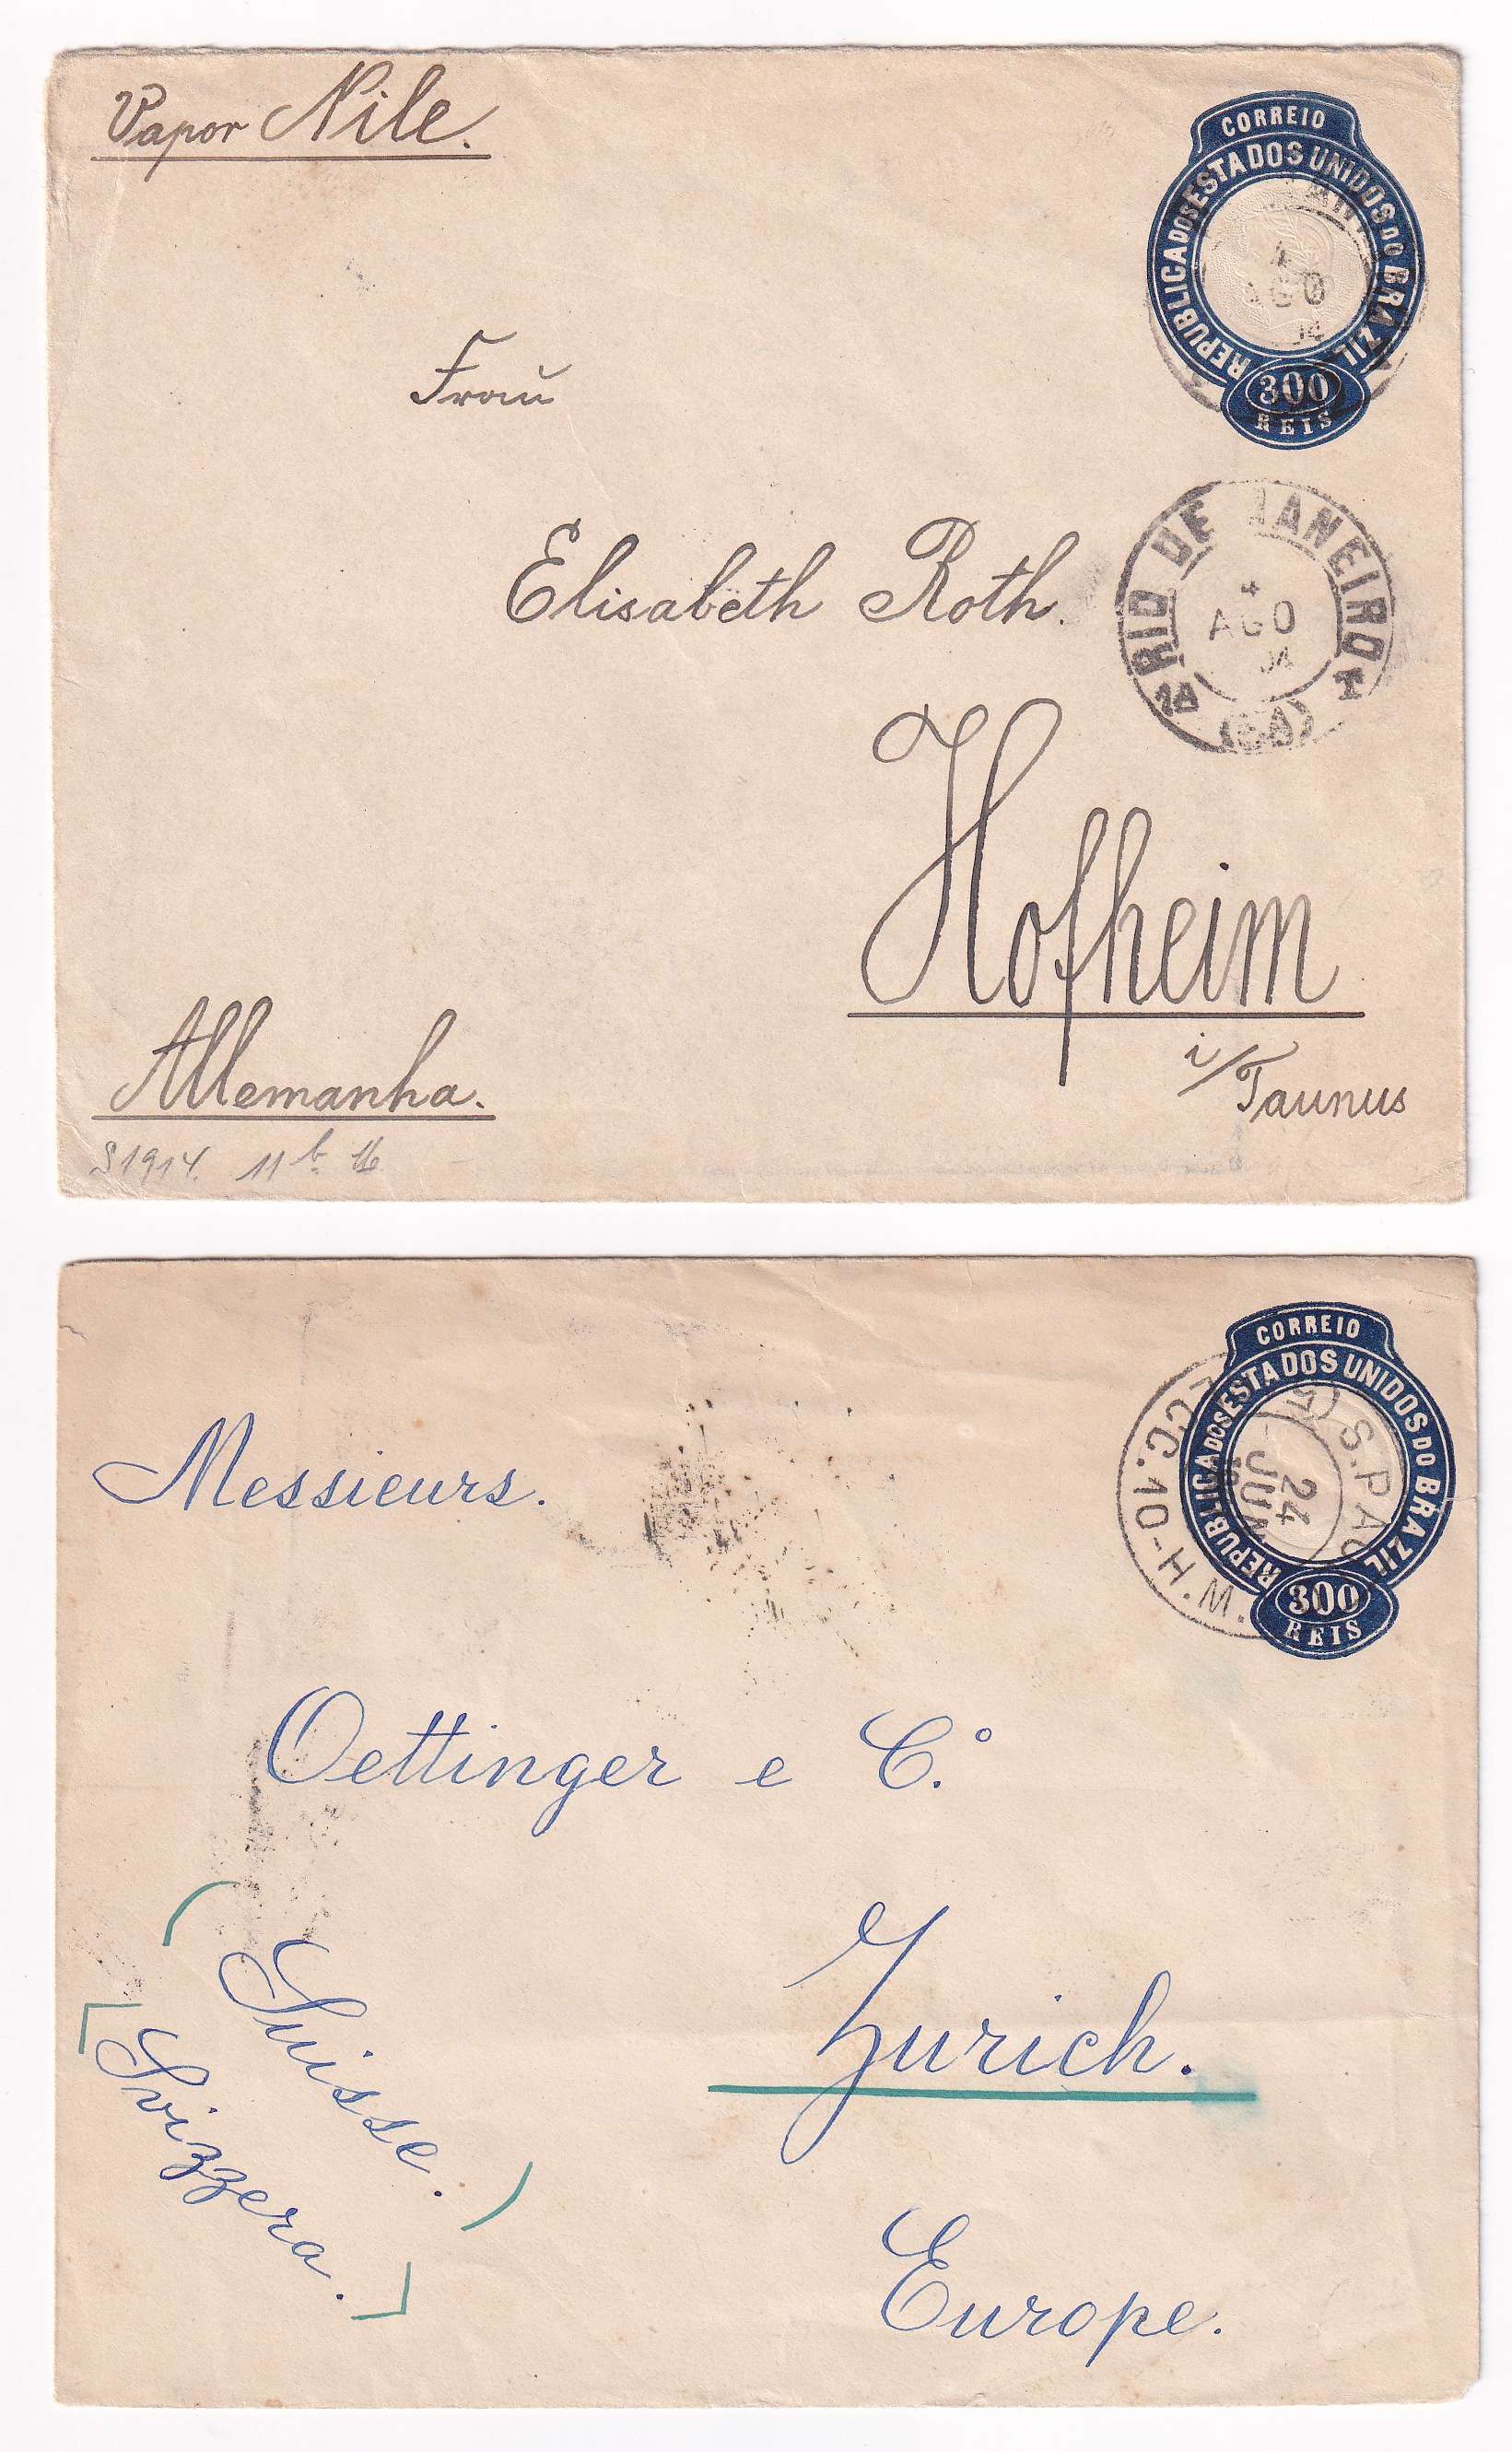 Vapor Nile.
CORREIO
REPUBLICA DOS ESTADOS UNIDOS DO BRAZIL
300
REIS
AGO
04
Frau
Elisabeth Roth.
RIO DE JANEIRO
4
AGO
04
Hofheim
i/Taunus
Allemanha.
S1914. 11
CORREIO
REPUBLICA DOS ESTADOS UNIDOS DO BRAZIL
300
REIS
S. PAU
24
JUN
10-H.M.
Messieurs.
Oettinger e C.º
Zurich.
Europe.
Suisse.
Svizzera.